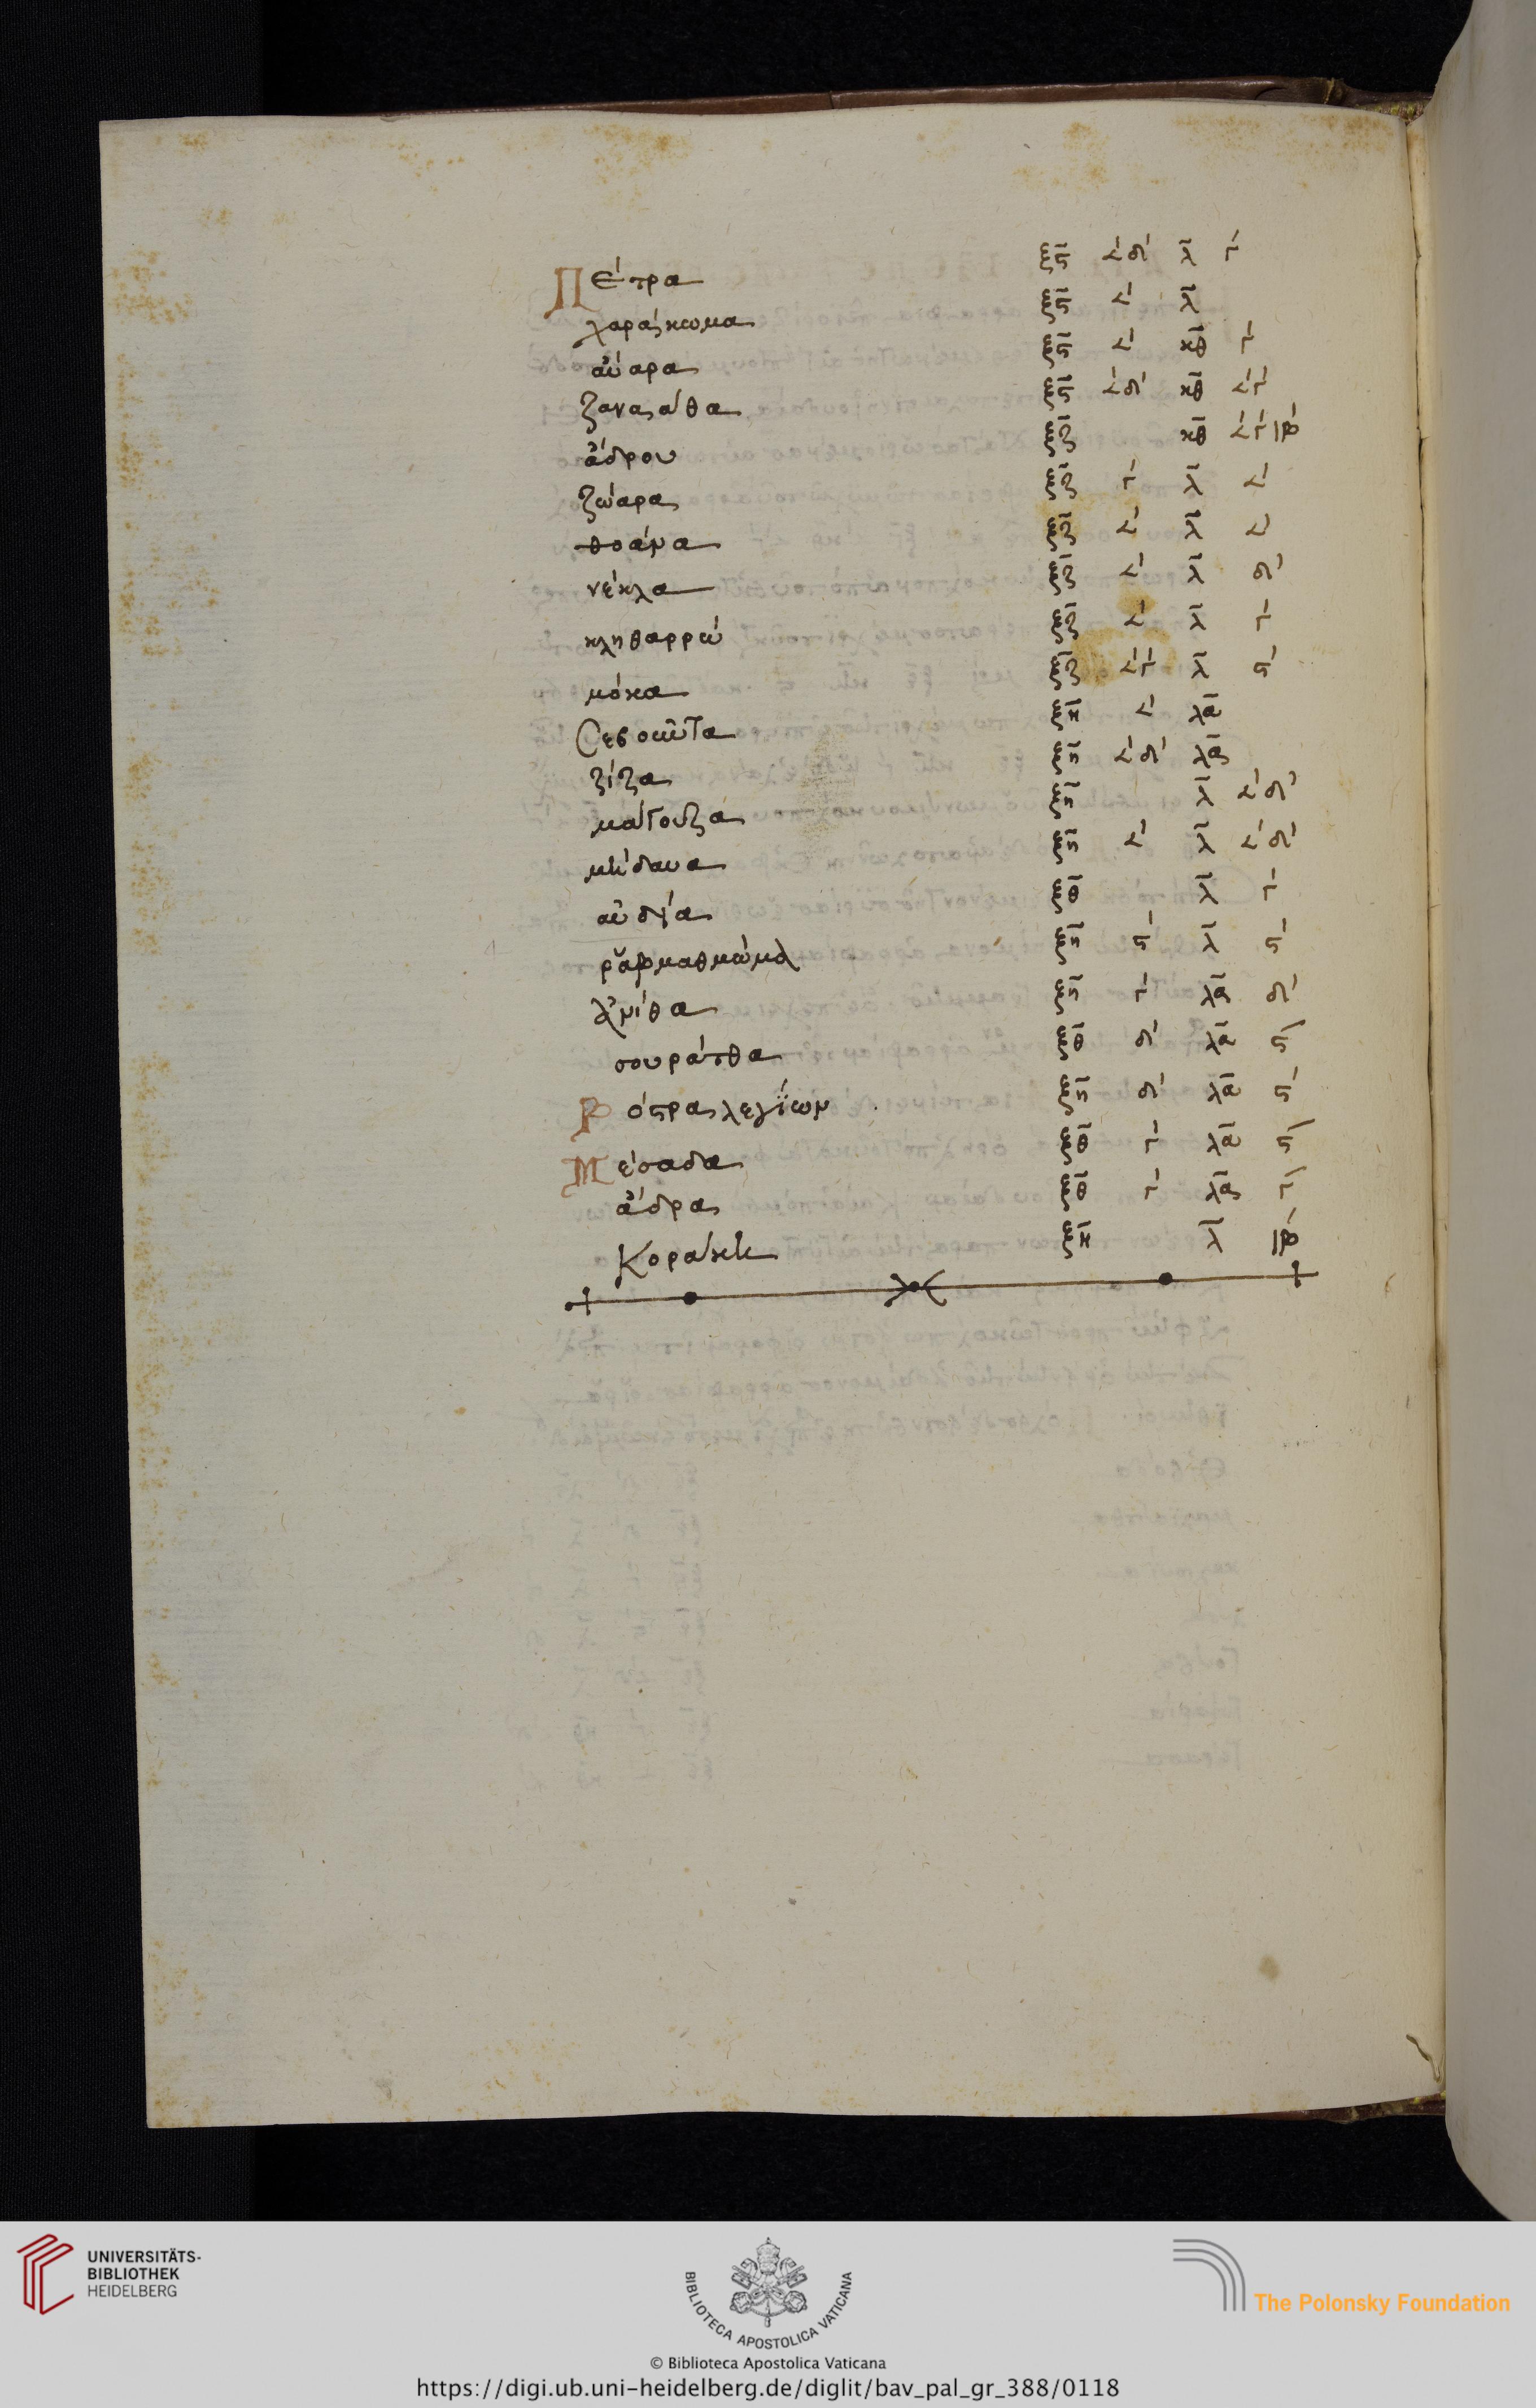 Πέτρα ξϛ ∠'δ' λ γ'
χαράκωμα ξϛ ∠' λ
αὔαρα ξϛ ∠' κθ γ'
ζαναάθα ξϛ ∠'δ' κθ ∠'γ'
ἄδρου ξζ κθ ∠'γ'ιβ'
ζώαρα ξζ γ' λ ∠'
θοάνα ξζ ∠' λ ∠'
νέκλα ξζ ∠' λ δ'
κληθαρρώ ξζ ∠' λ γ'
μόκα ξζ ∠'γ' λ ϛ'
ξη ∠' λα
ζίζα ξϛ ∠'δ' λα
μάγουζα ξϛ λ ∠'δ'
μήδαυα ξϛ ∠' λ ∠'δ'
αὐδία ξθ λ γ'
ῥαβμαθμώμα ξϛ ϛ' λ ϛ'
ἀνίθα ξϛ γ' λα δ'
σουράτθα ξθ δ' λα ϛ'
Βόστρα λεγίων ξϛ δ' λα ϛ'
Μέσαδα ξθ γ' λα ϛ'
ἄδρα ξθ γ' λα γ'
Κοράκη ξη λ ιβ'
UNIVERSITÄTS-
BIBLIOTHEK
HEIDELBERG
BIBLIOTECA APOSTOLICA VATICANA
The Polonsky Foundation
© Biblioteca Apostolica Vaticana
https://digi.ub.uni-heidelberg.de/diglit/bav_pal_gr_388/0118